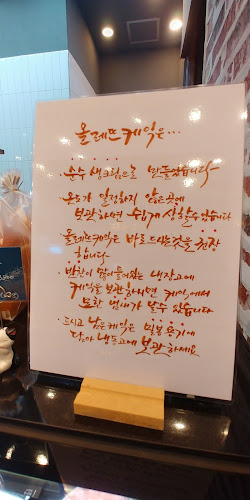 올레뜨케익은...
· 순수 생크림으로 만들었습니다~
· 온도가 일정하지 않은곳에
보관하면 쉽게 상할수있습니다
· 올레뜨케익은 바로드시는것을 권장
합니다~
· 반찬이 많이들어있는 냉장고에
케익을 보관하시면 케익에서
반찬 냄새가 날수 있습니다
· 드시고 남은케익은 밀봉 용기에
담아 냉동고에 보관하세요